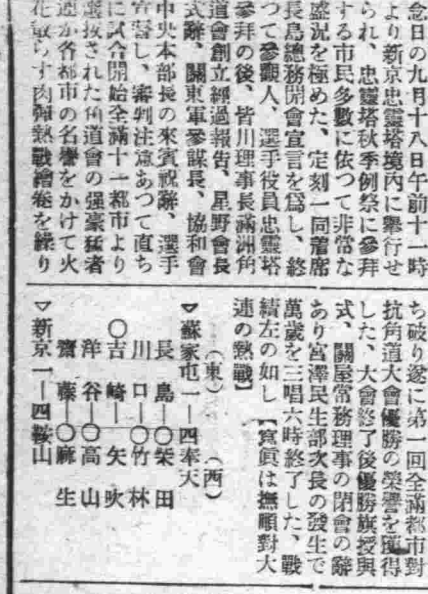 念日の九月十八日午前十一時
より新京忠靈塔境内に舉行せ
られ、忠靈塔秋季例祭に參拜
する市民多數に依つて非常な
盛況を極めた、定刻一同着席
長島總務開會宣言を爲し、終
つて參觀人、選手役員忠靈塔
參拜の後、皆川理事長滿洲角
道會創立經過報告、星野會長
式辭、關東軍參謀長、協和會
中央本部長の來賓祝辭、選手
宣誓し、審判注意あつて直ち
に試合開始全滿十一都市より
選拔された角道會の强豪猛者
連が各都市の名譽をかけて火
花散らす肉彈熱戰繪卷を繰り
ち破り遂に第一回全滿都市對
抗角道大會優勝の榮譽を獲得
した、大會終了後優勝旗授與
式、關屋常務理事の閉會の辭
あり宮澤民生部次長の發生で
萬歲を三唱六時終了した、戰
績左の如し【寫眞は撫順對大
連の熱戰】
（東）　（西）
▽蘇家屯一―四奉天
長島―〇柴田
川口―〇竹林
〇吉崎―矢吹
洋谷―〇高山
齋藤―〇麻生
▽新京一―四鞍山